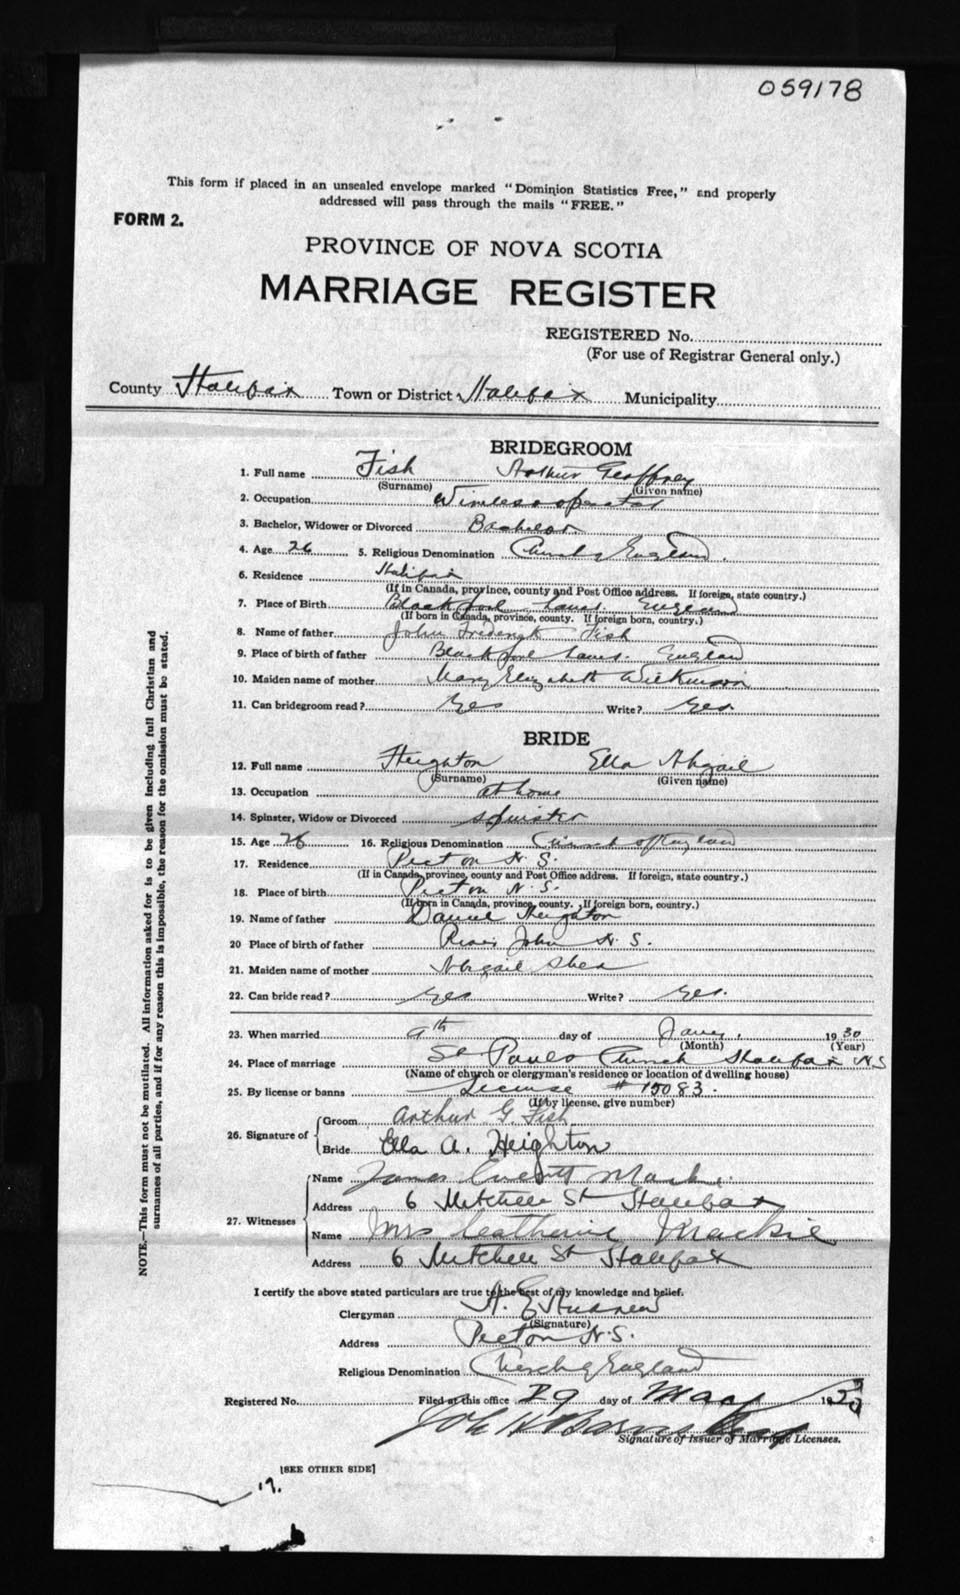 059178
This form if placed in an unsealed envelope marked "Dominion Statistics Free," and properly
addressed will pass through the mails "FREE."
FORM 2.
PROVINCE OF NOVA SCOTIA
MARRIAGE REGISTER
REGISTERED No.
(For use of Registrar General only.)
County Halifax Town or District Halifax Municipality
BRIDEGROOM
1. Full name Fish Arthur Geoffrey
(Surname) (Given name)
2. Occupation Wireless operator
3. Bachelor, Widower or Divorced Bachelor
4. Age 26 5. Religious Denomination Church of England.
6. Residence Halifax
(If in Canada, province, county and Post Office address. If foreign, state country.)
7. Place of Birth Blackpool Lancs. England
(If born in Canada, province, county. If foreign born, country.)
8. Name of father John Frederick Fish
9. Place of birth of father Blackpool Lancs. England
10. Maiden name of mother Mary Elizabeth Wilkinson
11. Can bridegroom read? Yes Write? Yes.
BRIDE
12. Full name Heighton Ella Abigail
(Surname) (Given name)
13. Occupation at home
14. Spinster, Widow or Divorced spinster
15. Age 26 16. Religious Denomination Church of England
17. Residence Picton N.S.
(If in Canada, province, county and Post Office address. If foreign, state country.)
18. Place of birth Picton N.S.
(If born in Canada, province, county. If foreign born, country.)
19. Name of father Daniel Heighton
20 Place of birth of father River John N.S.
21. Maiden name of mother Abigail Shea
22. Can bride read? Yes Write? Yes.
23. When married 9th day of Jany. 1930
(Month) (Year)
24. Place of marriage St Pauls Church Halifax N.S
(Name of church or clergyman's residence or location of dwelling house)
25. By license or banns License # 15083.
(If by license, give number)
26. Signature of Groom Arthur G. Fish
Bride Ella A. Heighton
27. Witnesses Name James Everett Mackie
Address 6 Mitchell St Halifax
Name Mrs Catherine Mackie
Address 6 Mitchell St Halifax
I certify the above stated particulars are true to the best of my knowledge and belief.
Clergyman A. E. Andrew
(Signature)
Address Picton N.S.
Religious Denomination Church of England
Registered No. Filed at this office 29 day of May 1930
Signature of Issuer of Marriage Licenses.
[SEE OTHER SIDE]
19.
NOTE.—This form must not be mutilated. All information asked for is to be given including full Christian and
surnames of all parties, and if for any reason this is impossible, the reason for the omission must be stated.